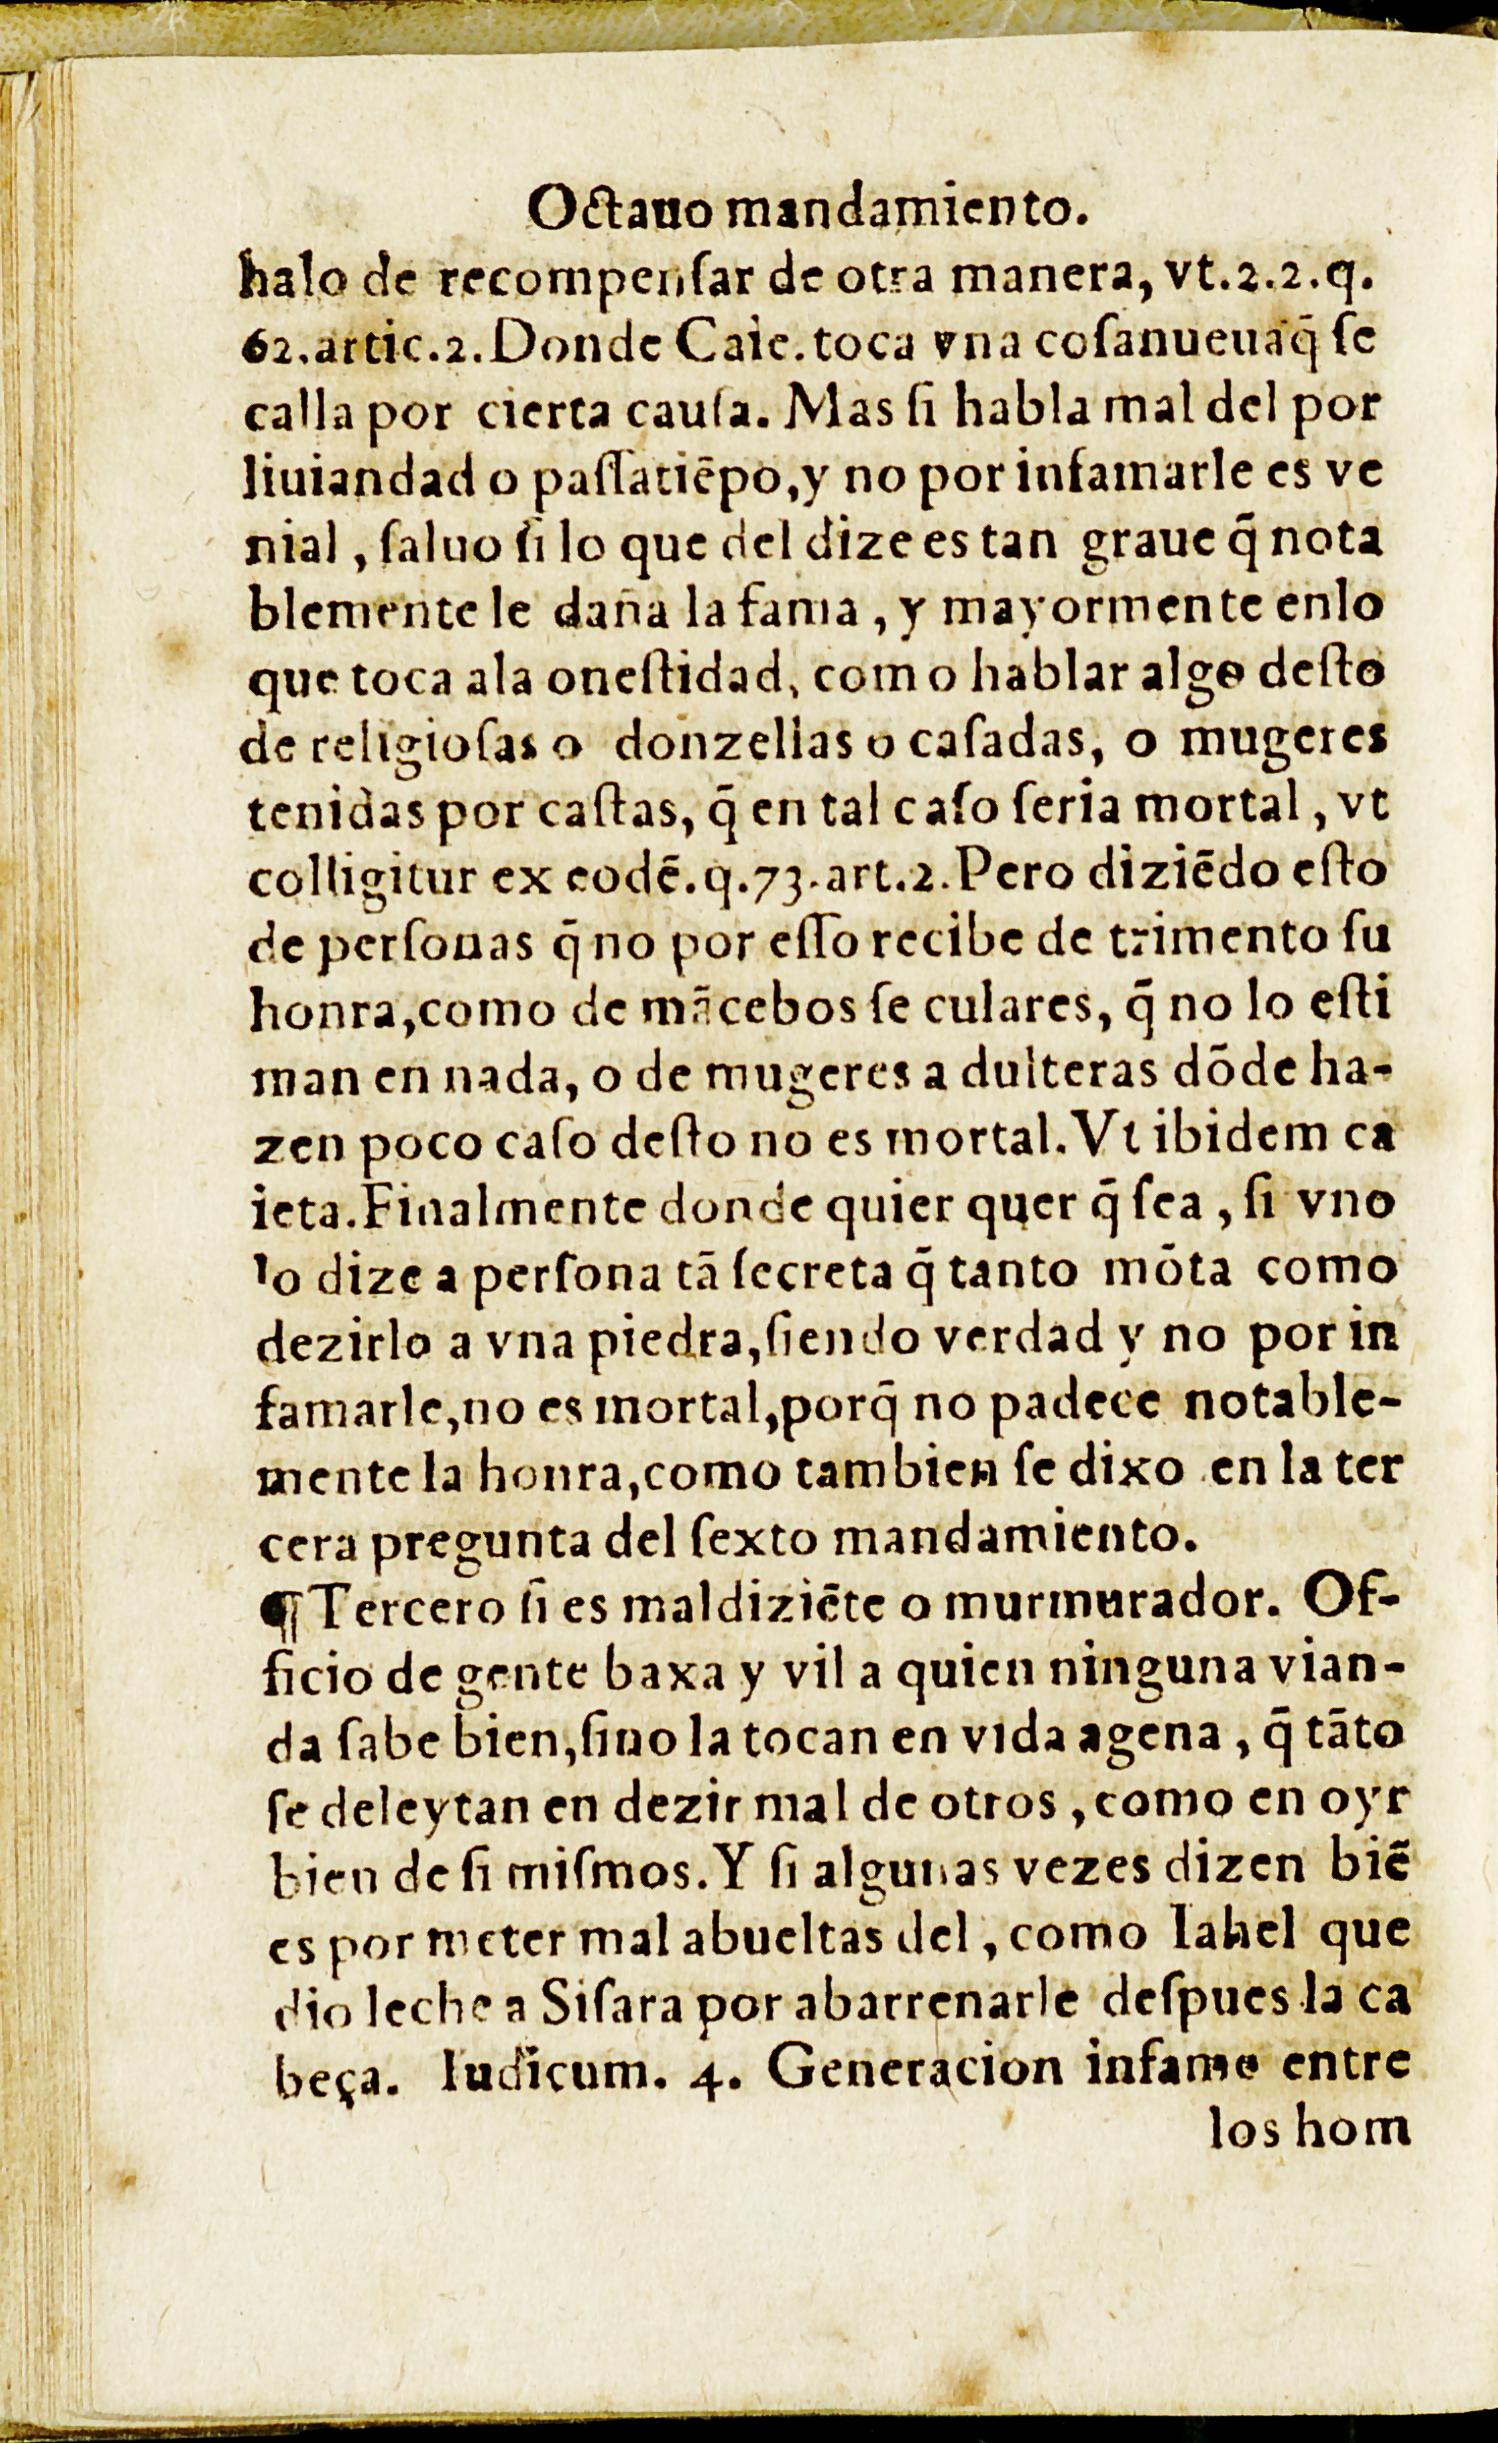 Octauo mandamiento.
halo de recompenſar de otra manera, vt.2.2.q.
62.artic.2.Donde Caie.toca vna coſanueuaq̃ ſe
calla por cierta cauſa. Mas ſi habla mal del por
liuiandad o paſſatiẽpo,y no por infamarle es ve
nial , ſaluo ſi lo que del dize es tan graue q̃ nota
blemente le daña la fama , y mayormente enlo
que toca ala oneſtidad, como hablar algo deſto
de religioſas o donzellas o caſadas, o mugeres
tenidas por caſtas, q̃ en tal caſo ſeria mortal , vt
colligitur ex eodẽ.q.73.art.2.Pero diziẽdo eſto
de perſonas q̃ no por eſſo recibe de trimento ſu
honra,como de mãcebos ſe culares, q̃ no lo eſti
man en nada, o de mugeres a dulteras dõde ha-
zen poco caſo deſto no es mortal.Vt ibidem ca
ieta.Finalmente donde quier quer q̃ ſea , ſi vno
lo dize a perſona tã ſecreta q̃ tanto mõta como
dezirlo a vna piedra,ſiendo verdad y no por in
famarle,no es mortal,porq̃ no padece notable-
mente la honra,como tambien ſe dixo en la ter
cera pregunta del ſexto mandamiento.
¶ Tercero ſi es maldiziẽte o murmurador. Of-
ficio de gente baxa y vil a quien ninguna vian-
da ſabe bien,ſino la tocan en vida agena , q̃ tãto
ſe deleytan en dezir mal de otros , como en oyr
bien de ſi miſmos.Y ſi algunas vezes dizen biẽ
es por meter mal abueltas del , como Iahel que
dio leche a Siſara por abarrenarle deſpues la ca
beça. Iudicum. 4. Generacion infame entre
los hom